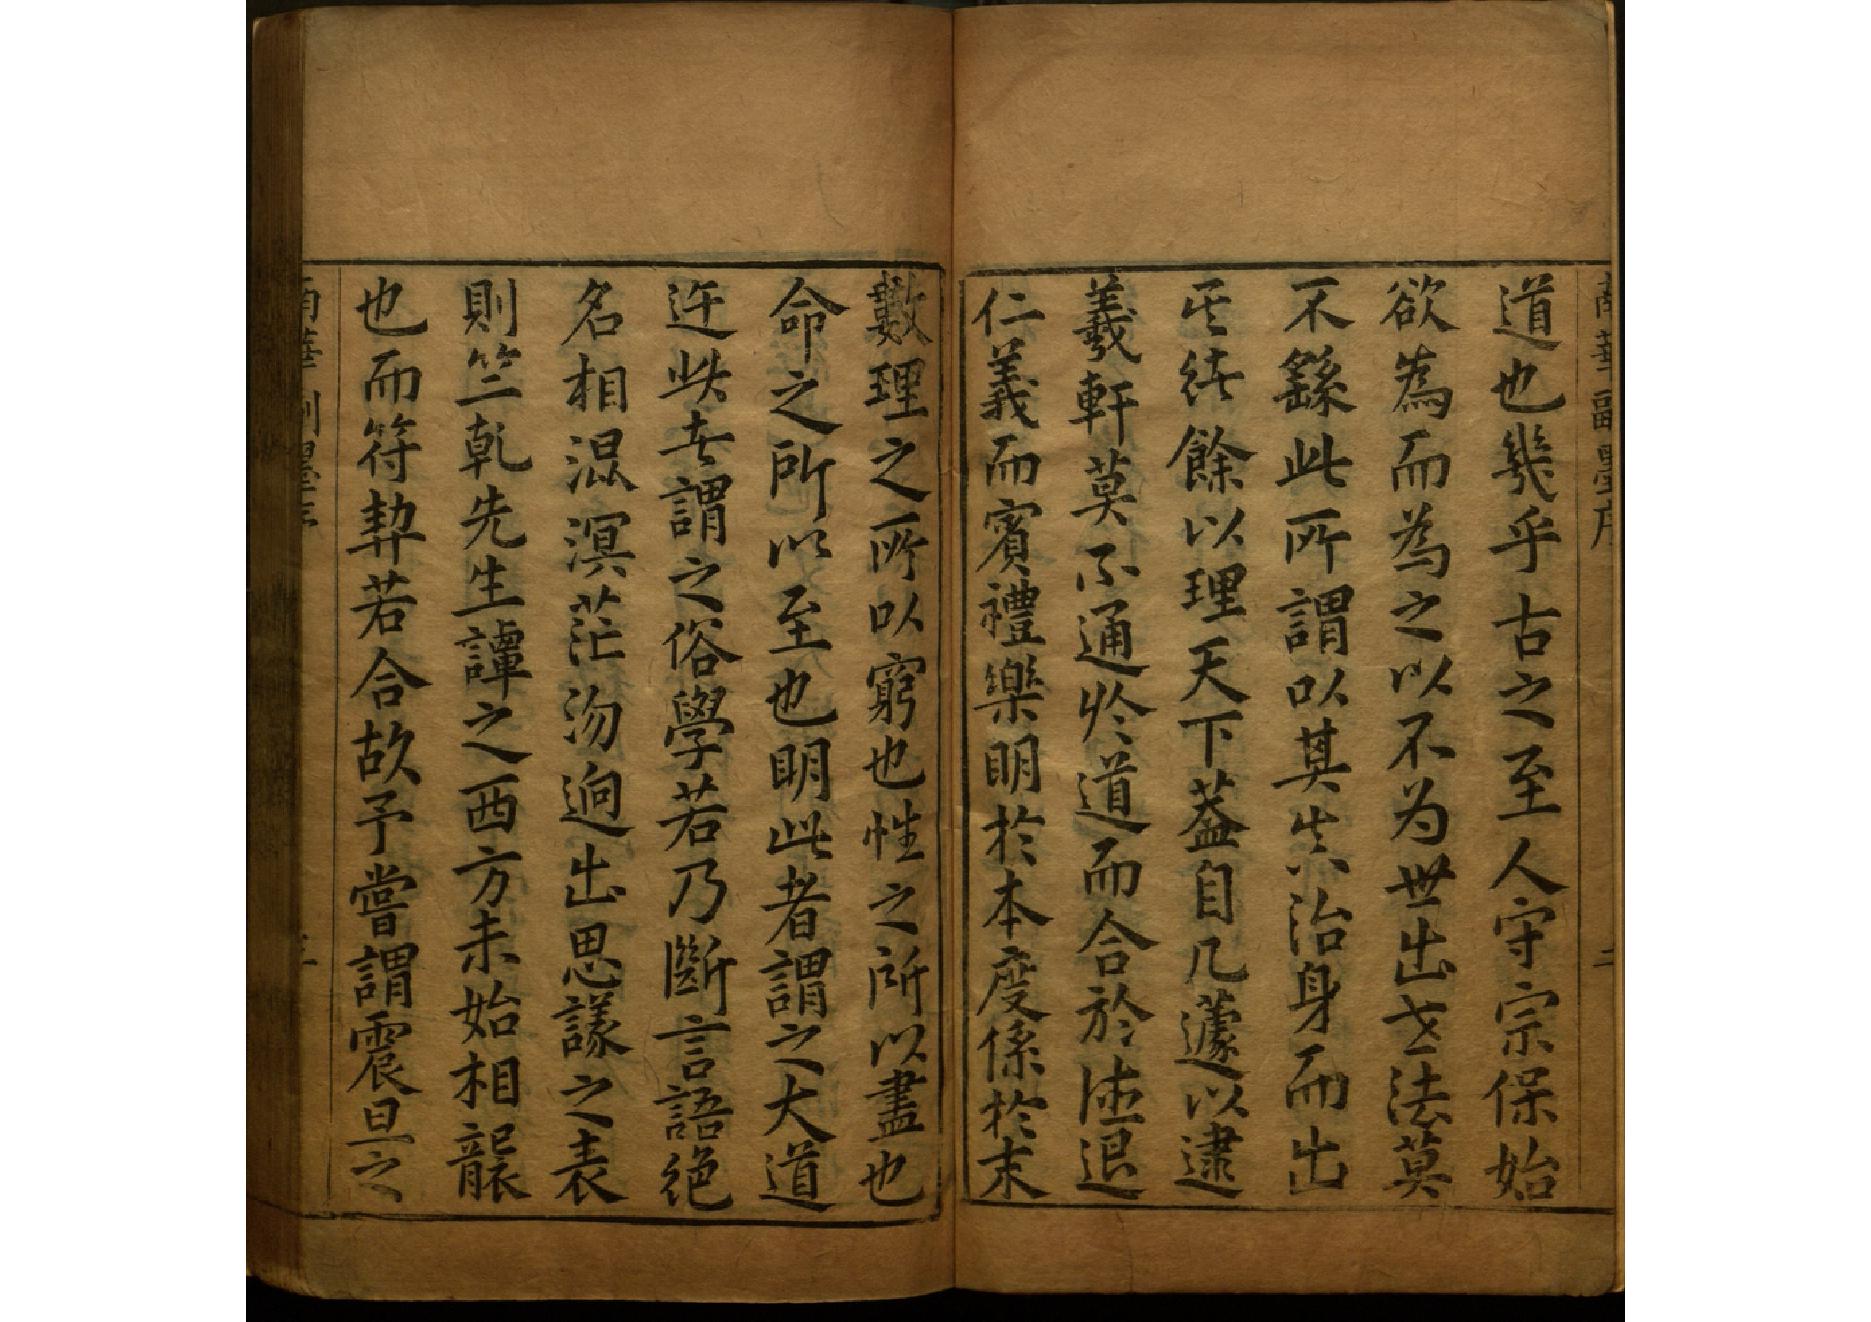 南華副墨序 二
道也幾乎古之至人守宗保始
欲為而為之以不为世出世法莫
不繇此所謂以其真治身而出
其緒餘以理天下葢自几蘧以逮
羲軒莫不通於道而合於德退
仁義而賓禮樂明於本度係於末
數理之所以窮也性之所以盡也
命之所以至也明此者謂之大道
迕此者謂之俗學若乃斷言語絶
名相混溟茫沕逈出思議之表
則竺乾先生譚之西方未始相襲
也而符契若合故予嘗謂震旦之
南華副墨序